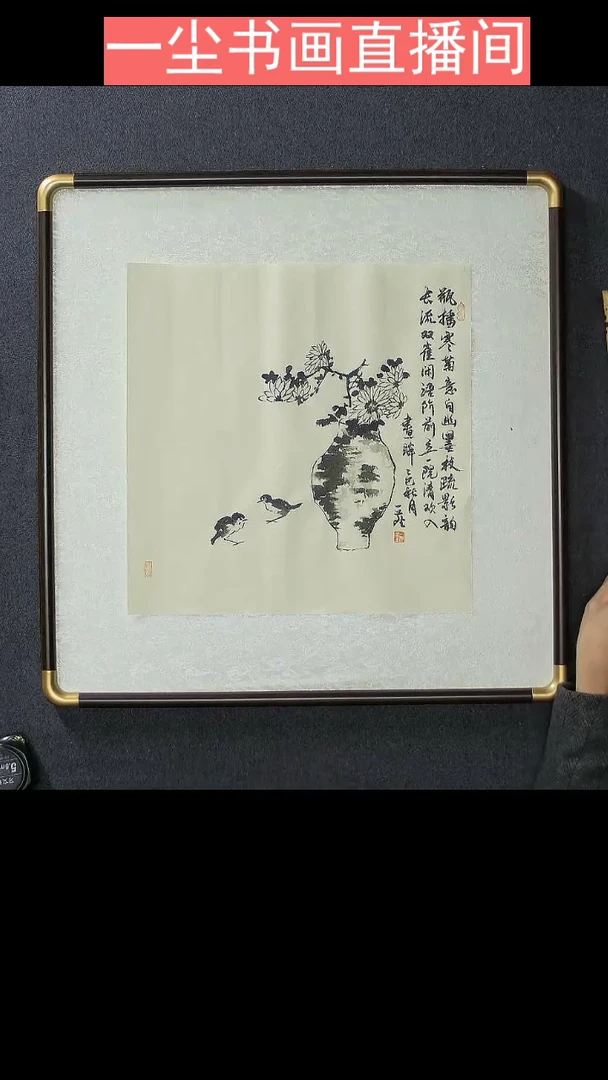 一尘书画直播间
瓶插寒菊意自幽墨枝疏影韵
长流双雀闲语阶前立一院清欢入
画眸 乙巳秋月
一尘
5.0m